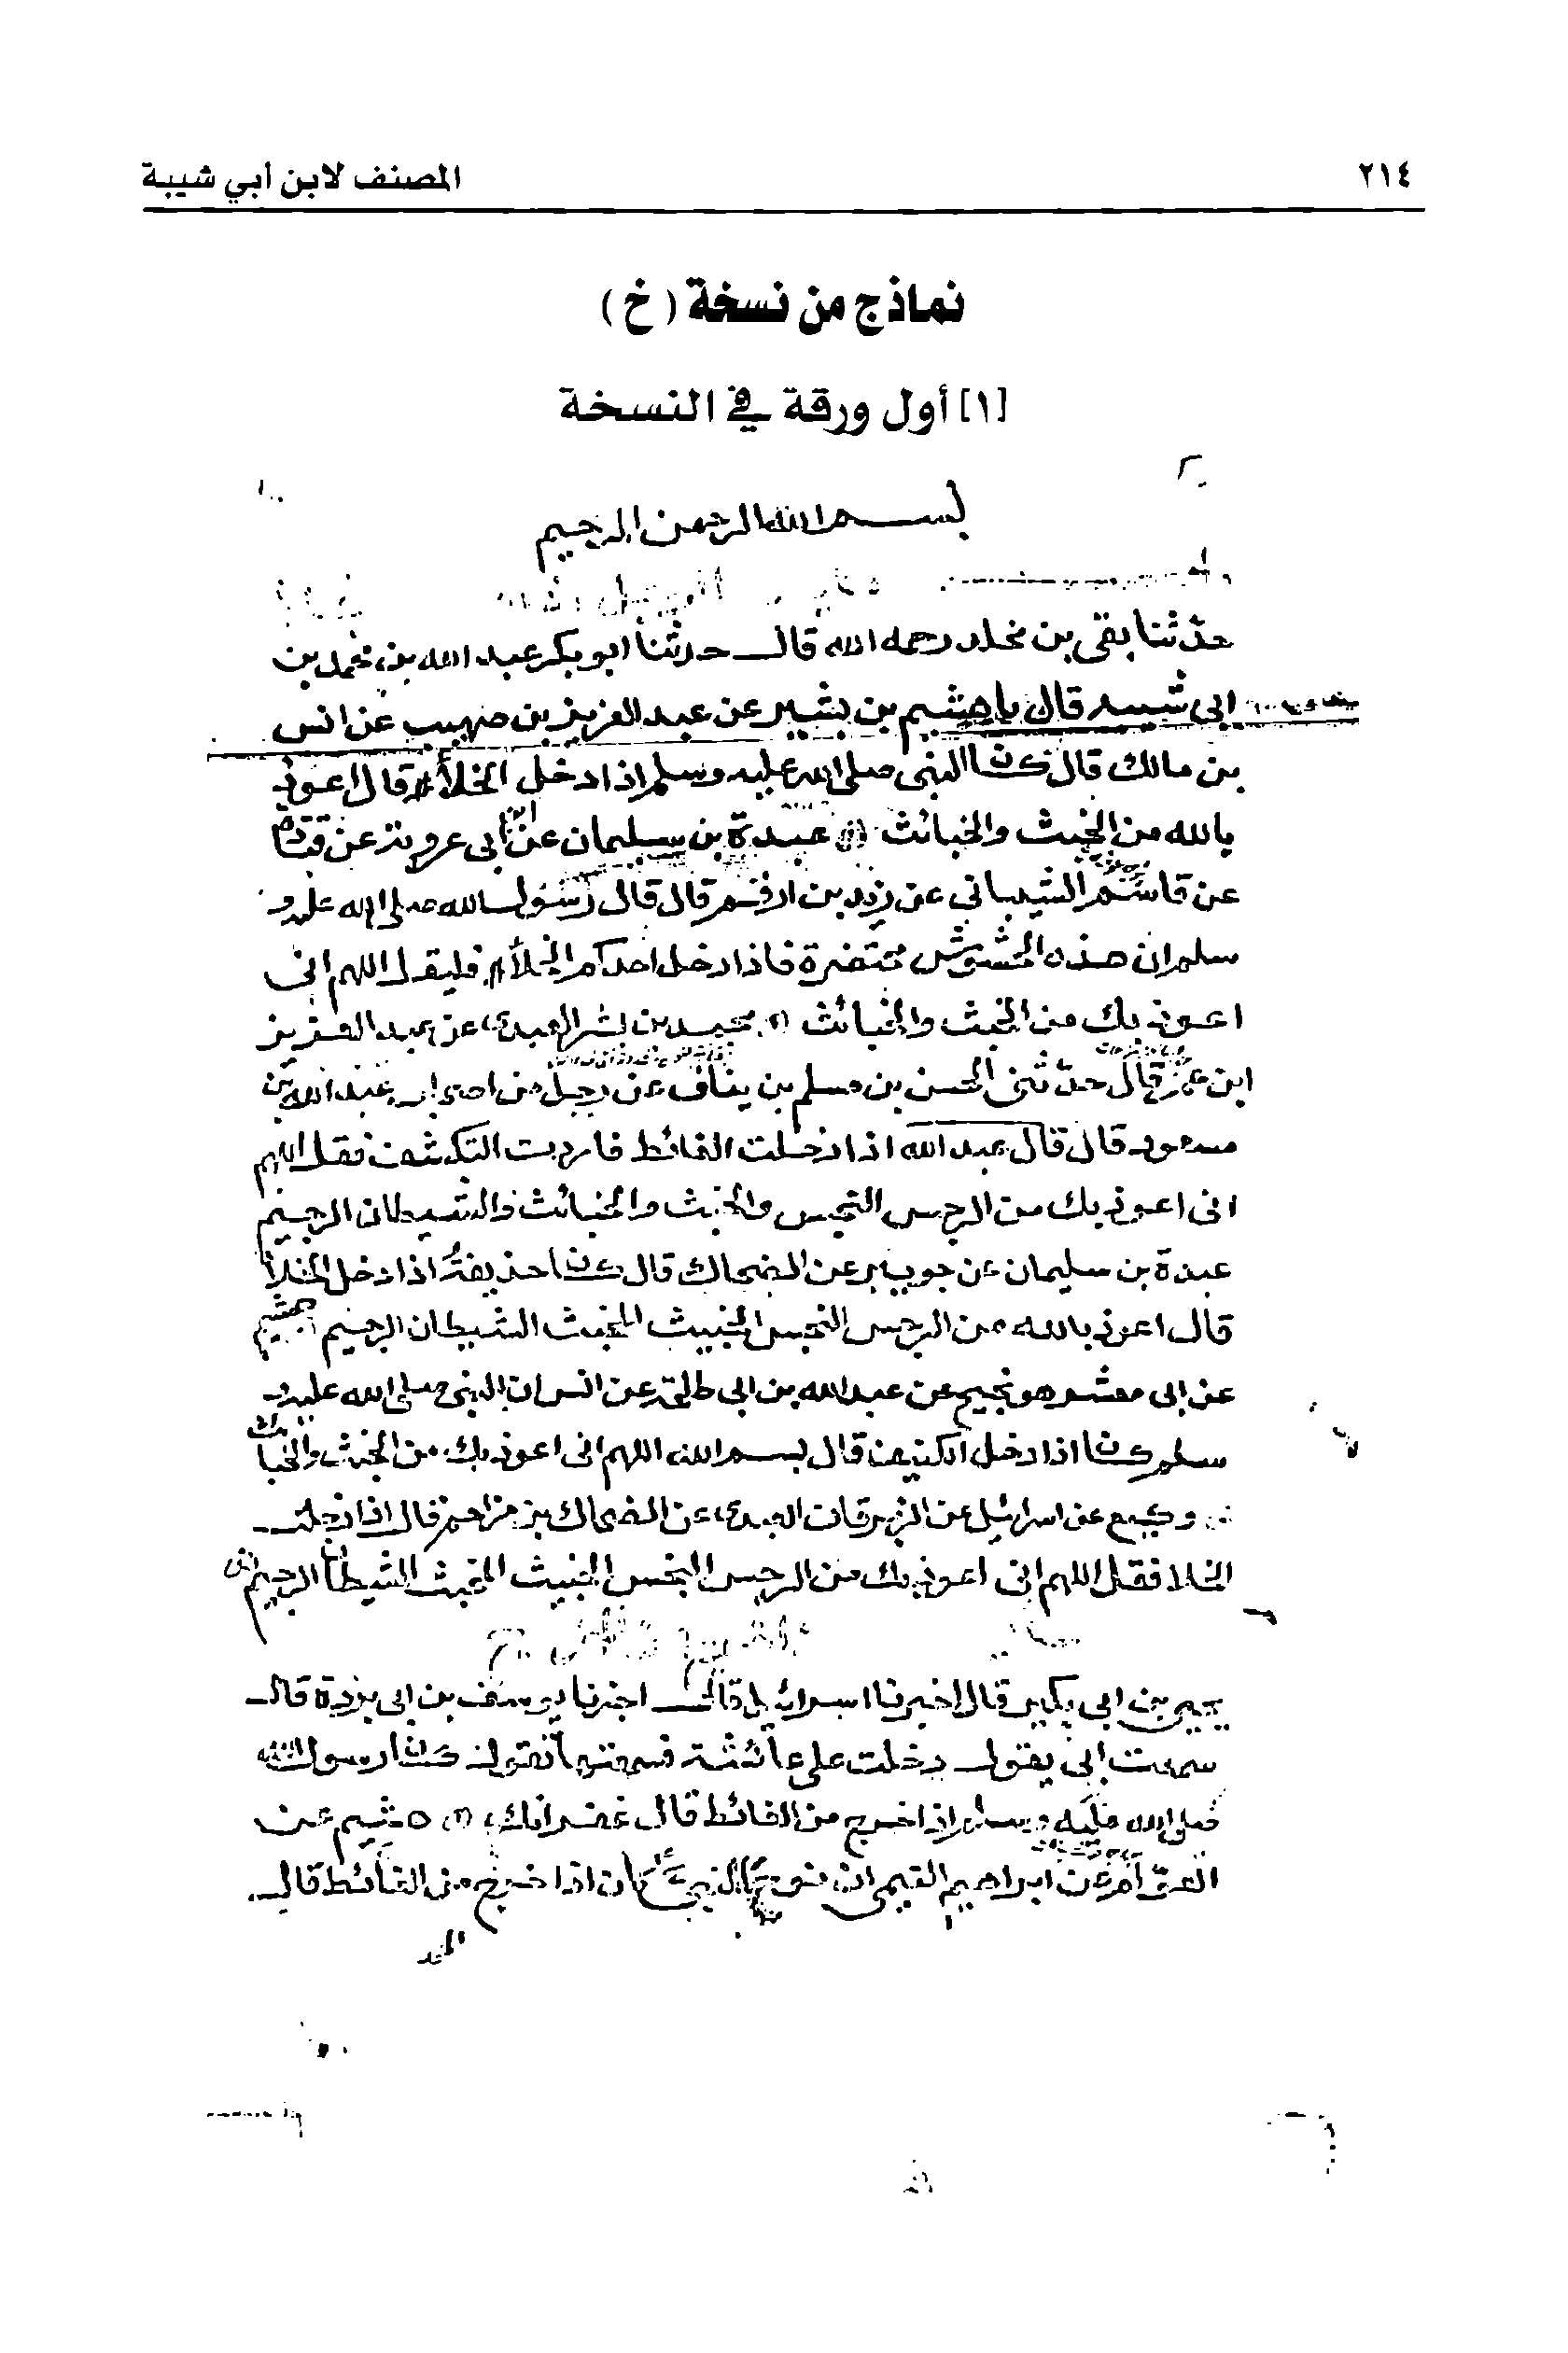 ٢١٤
المصنف لابن أبي شيبة
نماذج من نسخة (خ)
[١] أول ورقة في النسخة
بسم الله الرحمن الرحيم
حدثنا بقي بن مخلد رحمه الله قال حدثنا ابو بكر عبد الله بن محمد بن
ابي شيبه قال نا هشيم بن بشير عن عبد العزيز بن صهيب عن انس
بن مالك قال كان النبي صلى الله عليه وسلم اذا دخل الخلأ قال اعوذ
بالله من الخبث والخبائث عبدة بن سليمان عن ابن ابي عروبة عن قتادة
عن قاسم الشيباني عن زيد بن ارقم قال قال رسول الله صلى الله عليه و
سلم ان هذه الحشوش محتضرة فاذا دخل احدكم الخلأ فليقل اللهم اني
اعوذ بك من الخبث والخبائث محمد بن بشر العبدي عن عبد العزيز
ابن عمر قال حدثني الحسن بن مسلم بن يناف عن رجل من اصحاب عبد الله بن
مسعود قال قال عبد الله اذا دخلت الغائط فاردت التكشف فقل اللهم
اني اعوذ بك من الرجس النجس والخبث والخبائث والشيطان الرجيم
عبدة بن سليمان عن جويبر عن الضحاك قال كان حذيفة اذا دخل الخلأ
قال اعوذ بالله من الرجس النجس الخبيث المخبث الشيطان الرجيم هشيم
عن ابي معشر هو نجيح عن عبد الله بن ابي طلحة عن انس ان النبي صلى الله عليه و
سلم كان اذا دخل الكنيف قال بسم الله اللهم اني اعوذ بك من الخبث والخبائث
وكيع عن اسرائيل عن الزبرقان العبدي عن الضحاك بن مزاحم قال اذا دخلت
الخلا فقل اللهم اني اعوذ بك من الرجس النجس الخبيث المخبث الشيطان الرجيم
يحيى بن ابي بكير قال اخبرنا اسرائيل قال اخبرنا يوسف بن ابي بردة قال
سمعت ابي يقول دخلت على عائشة فسمعتها تقول كان رسول الله
صلى الله عليه وسلم اذا خرج من الغائط قال غفرانك هشيم عن
العوام عن ابراهيم التيمي ان نوح النبي كان اذا خرج من الغائط قال
الحمد